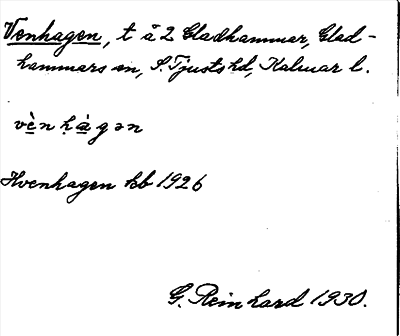 Venhagen, t å 2 Gladhammar, Glad-
hammars sn, S. Tjusts hd, Kalmar l.
vèn ḥàgən
Hvenhagen kb 1926
G. Reinhard 1930.